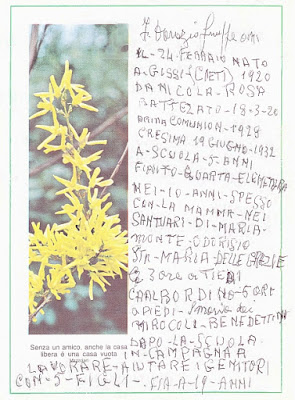 IL-24. FEBRAIO NATO
A-GUSSI (CIETI) 1920
DA NICOLA-ROSA
BATTEZATO-18-3-20
PRIMA COMUNION-1928
CRESIMA 19 GIUGNO-1932
A-SCUOLA-5-ANNI
FINITO-QUARTA-ELEMETARA
NEI-10-ANNI-SPESSO
CON-LA MAMMA-NEI
SANTUARI-DI-MARIA-
MONTE-ODERISIO
STA-MARIA-DELLE GRAZIE
3 ore A-TIEDI
CAALBORDINO-5 ORE
APIEDI-
MIROCOLI-BENEDETTINA
DAPO-LA SCUOLA
IN CAMPAGNA A
LAVORARE-AIUTARE I GENITORI
CON-5-FIGLI-. FIA-A-19-ANNI
Senza un amico, anche la casa
libera è una casa vuota